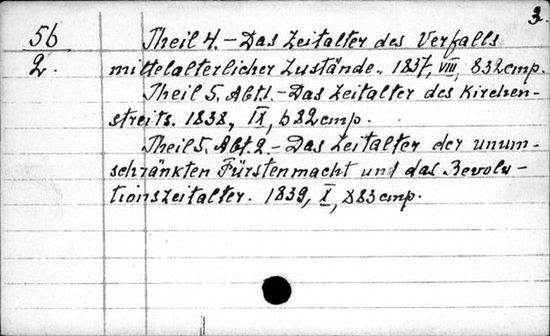 3.
56
2.
Theil 4.–Das Zeitalter des Verfalls
mittelalterlicher Zustände. 1837, VIII, 832 стр.
Theil 5. Abt.1.–Das Zeitalter des Kirchen-
streits. 1838, IX, 682 стр.
Theil 5. Abt. 2.–Das Zeitalter der unum-
schränkten Fürstenmacht und das Revolu-
tionszeitalter. 1839, X, 883 стр.